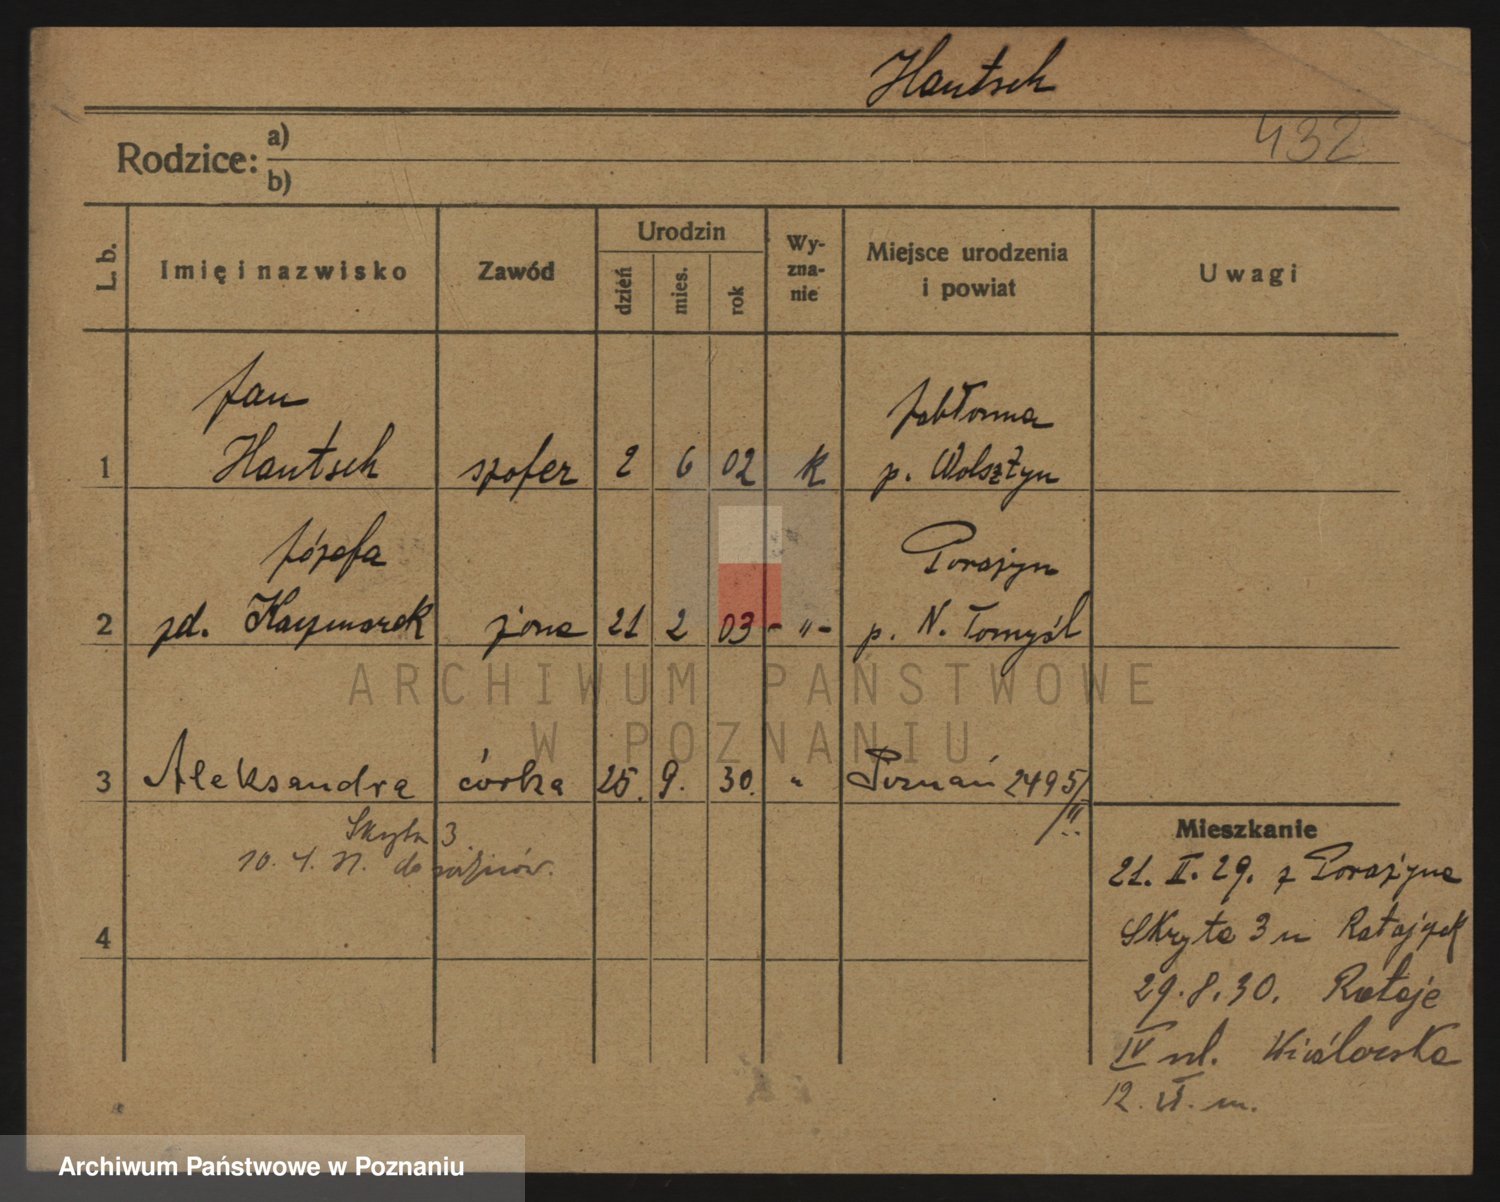 Hautsch
432
Rodzice: a)
b)
L. b.
Imię i nazwisko
Zawód
Urodzin
dzień
mies.
rok
Wy-
zna-
nie
Miejsce urodzenia
i powiat
Uwagi
Jan Jabłonna
1 Hautsch szofer 2 6 02 K p. Wolsztyn
Józefa Porażyn
2 zd. Kaczmarek żona 21 2 03 - " - p. N. Tomyśl
ARCHIWUM PAŃSTWOWE
W POZNANIU
3 Aleksandra córka 25. 9. 30. " Poznań 2495/
II
Skryta 3
10. 4. 31. do
4
Mieszkanie
21. II. 29. z Porażyna
Skryta 3 u Ratajczak
29. 8. 30. Rataje
IV ul. Wioślarska
12. VI. m.
Archiwum Państwowe w Poznaniu